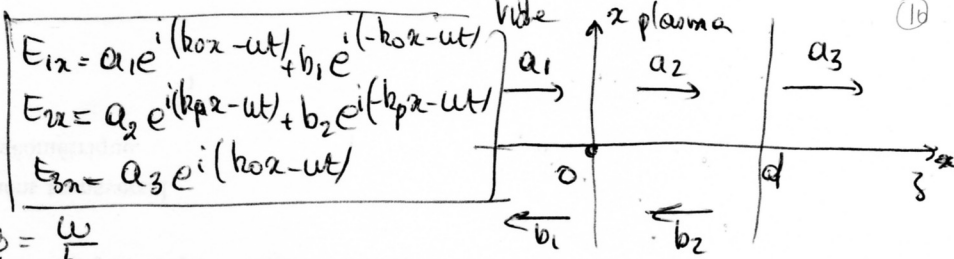 E₁ₓ = a₁e^{i(k₀x-ωt)} + b₁e^{i(-k₀x-ωt)}
E₂ₓ = a₂e^{i(kₚx-ωt)} + b₂e^{i(-kₚx-ωt)}
E₃ₓ = a₃e^{i(k₀x-ωt)}
= ω
Vide x plasma
16
a₁ a₂ a₃
0 d
b₁ b₂